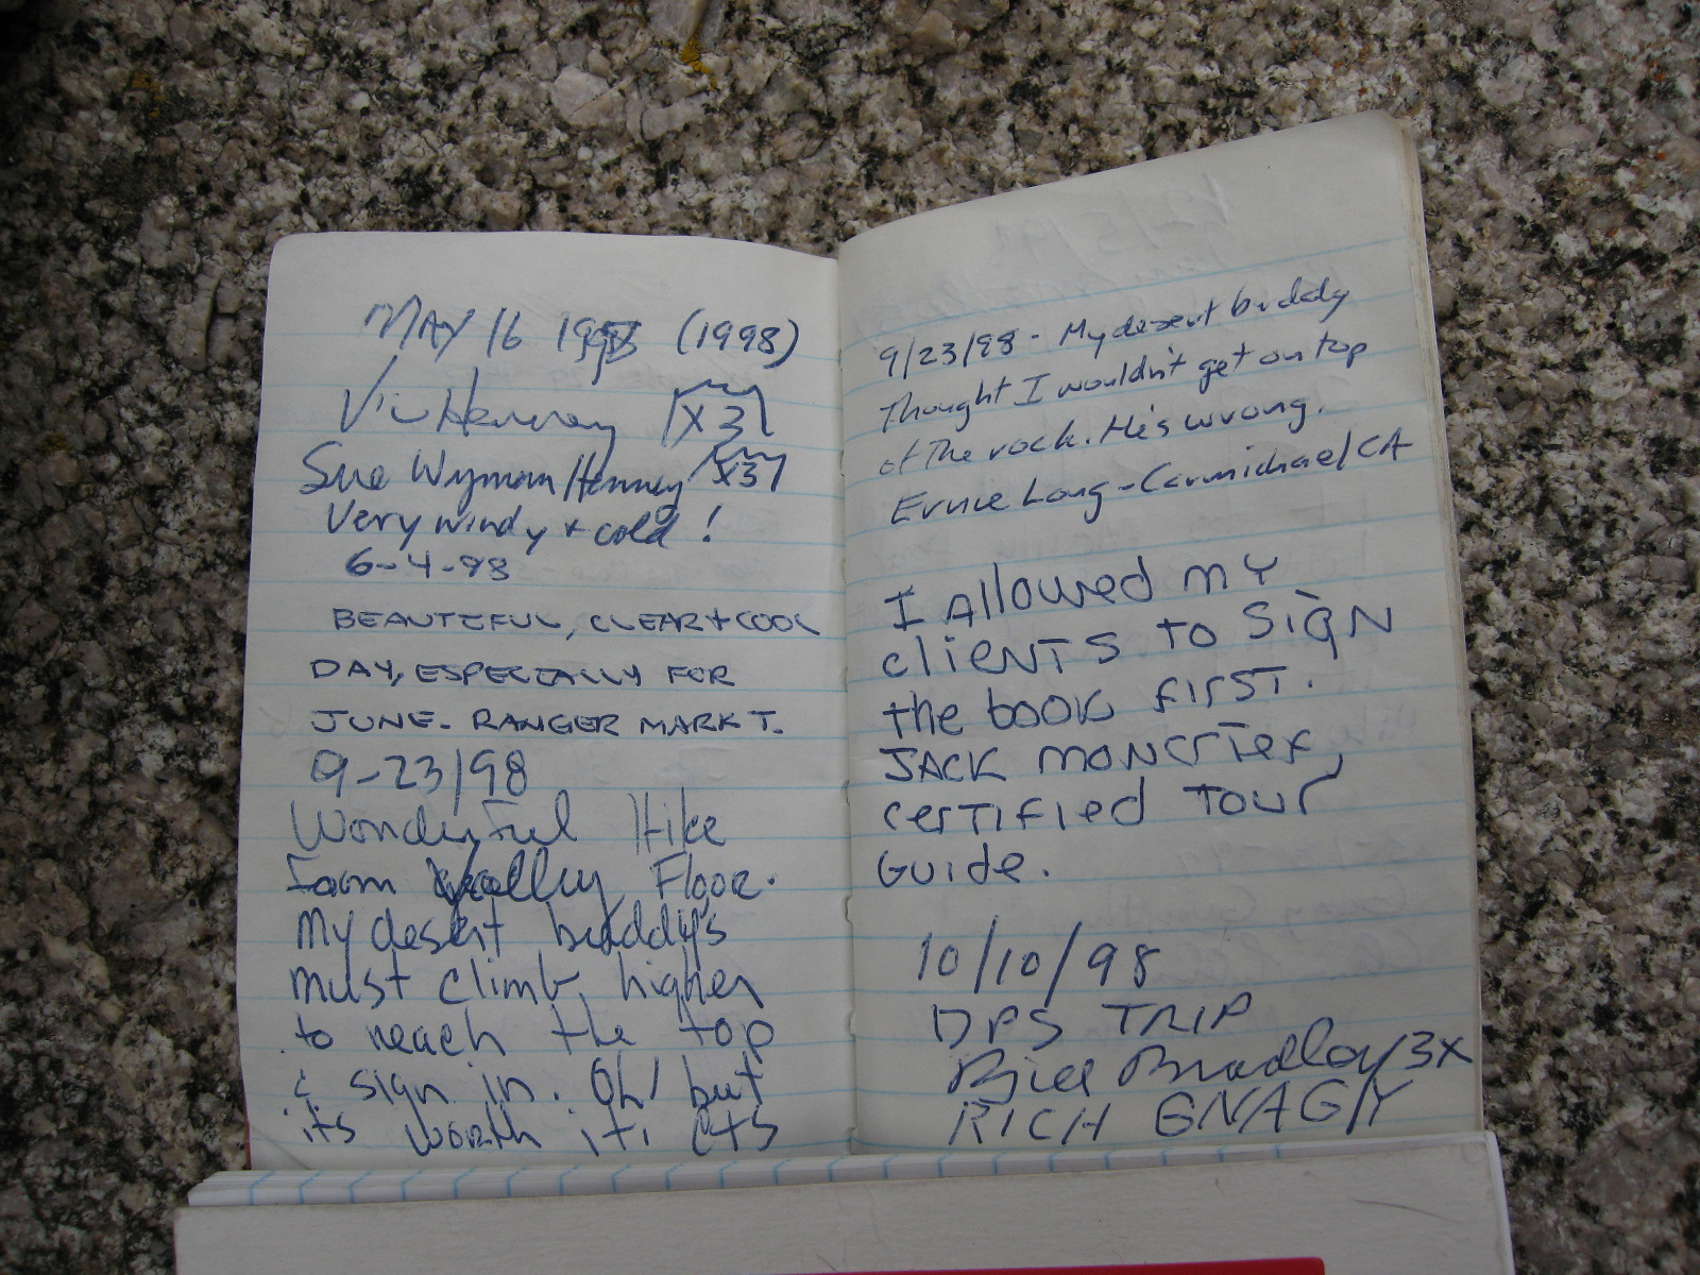 MAY 16 1998 (1998)
Vic Henney X3
Sue Wyman Henney X3
Very windy + cold!
6-4-98
BEAUTIFUL, CLEAR + COOL
DAY, ESPECIALLY FOR
JUNE. RANGER MARK T.
9-23/98
Wonderful Hike
from Valley Floor.
My desert buddy's
must climb higher
to reach the top
& sign in. Oh! but
its worth it!
9/23/98 - My desert buddy
Thought I wouldn't get on top
of the rock. He's wrong.
Ernie Long - Carmichael CA
I Allowed my
clients to sign
the book first.
JACK MONCrief,
certified Tour
Guide.
10/10/98
DPS TRIP
Bill Bradley 3X
RICH GNAGY